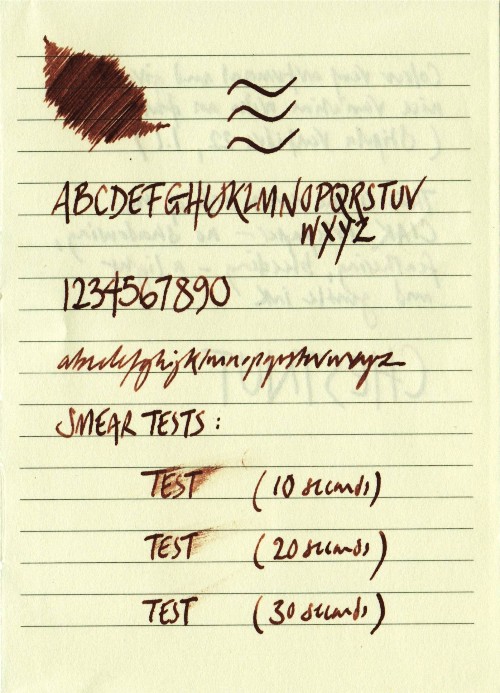 ABCDEFGHIJKLMNOPQRSTUV
WXYZ
1234567890
abcdefghijklmnopqrstuvwxyz
SMEAR TESTS:
TEST (10 seconds)
TEST (20 seconds)
TEST (30 seconds)